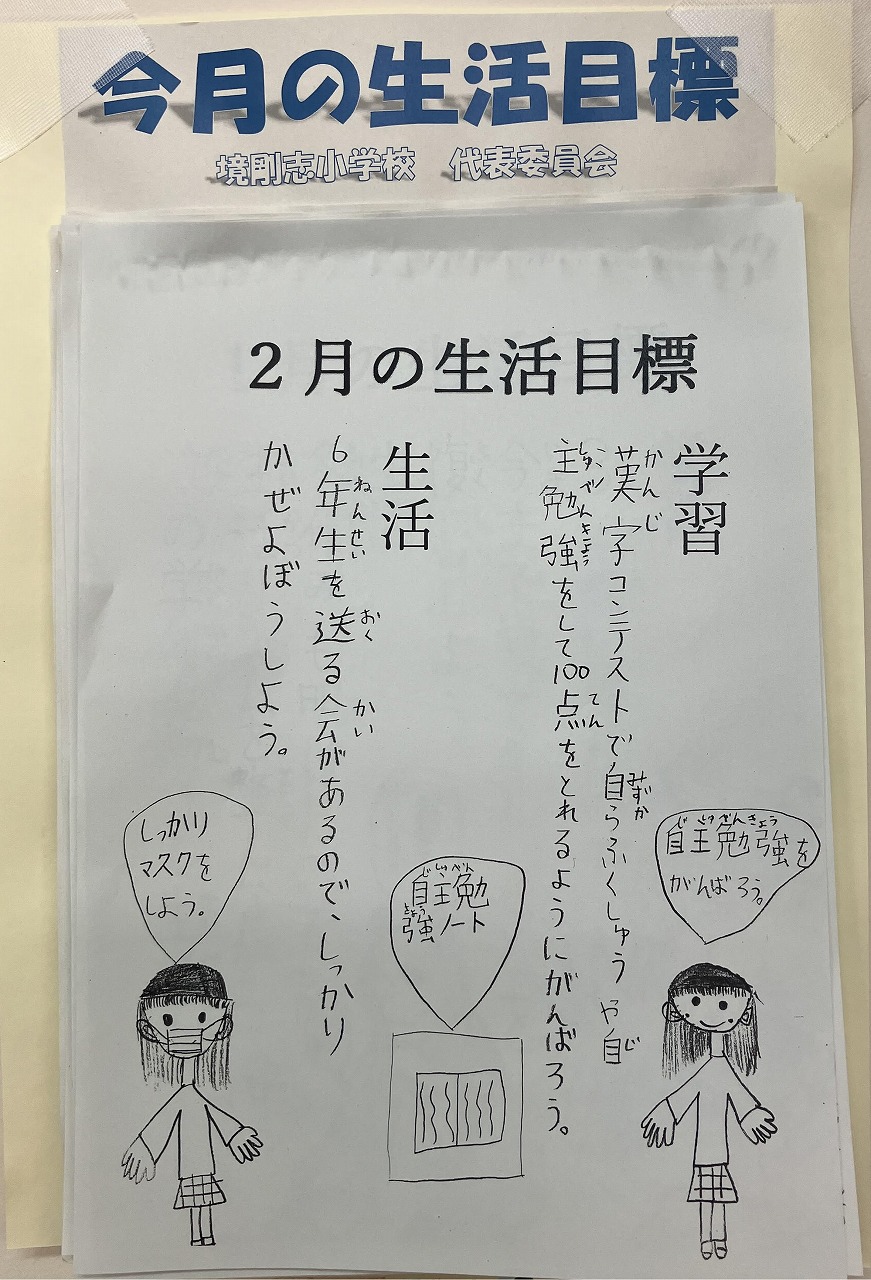 今月の生活目標
境剛志小学校 代表委員会
2月の生活目標
学習
漢字コンテストで自らふくしゅうや自
主勉強をして100点をとれるようにがんばろう。
生活
6年生を送る会があるので、しっかり
かぜよぼうしよう。
自主勉強を
がんばろう。
自主勉
強ノート
しっかり
マスクを
しよう。